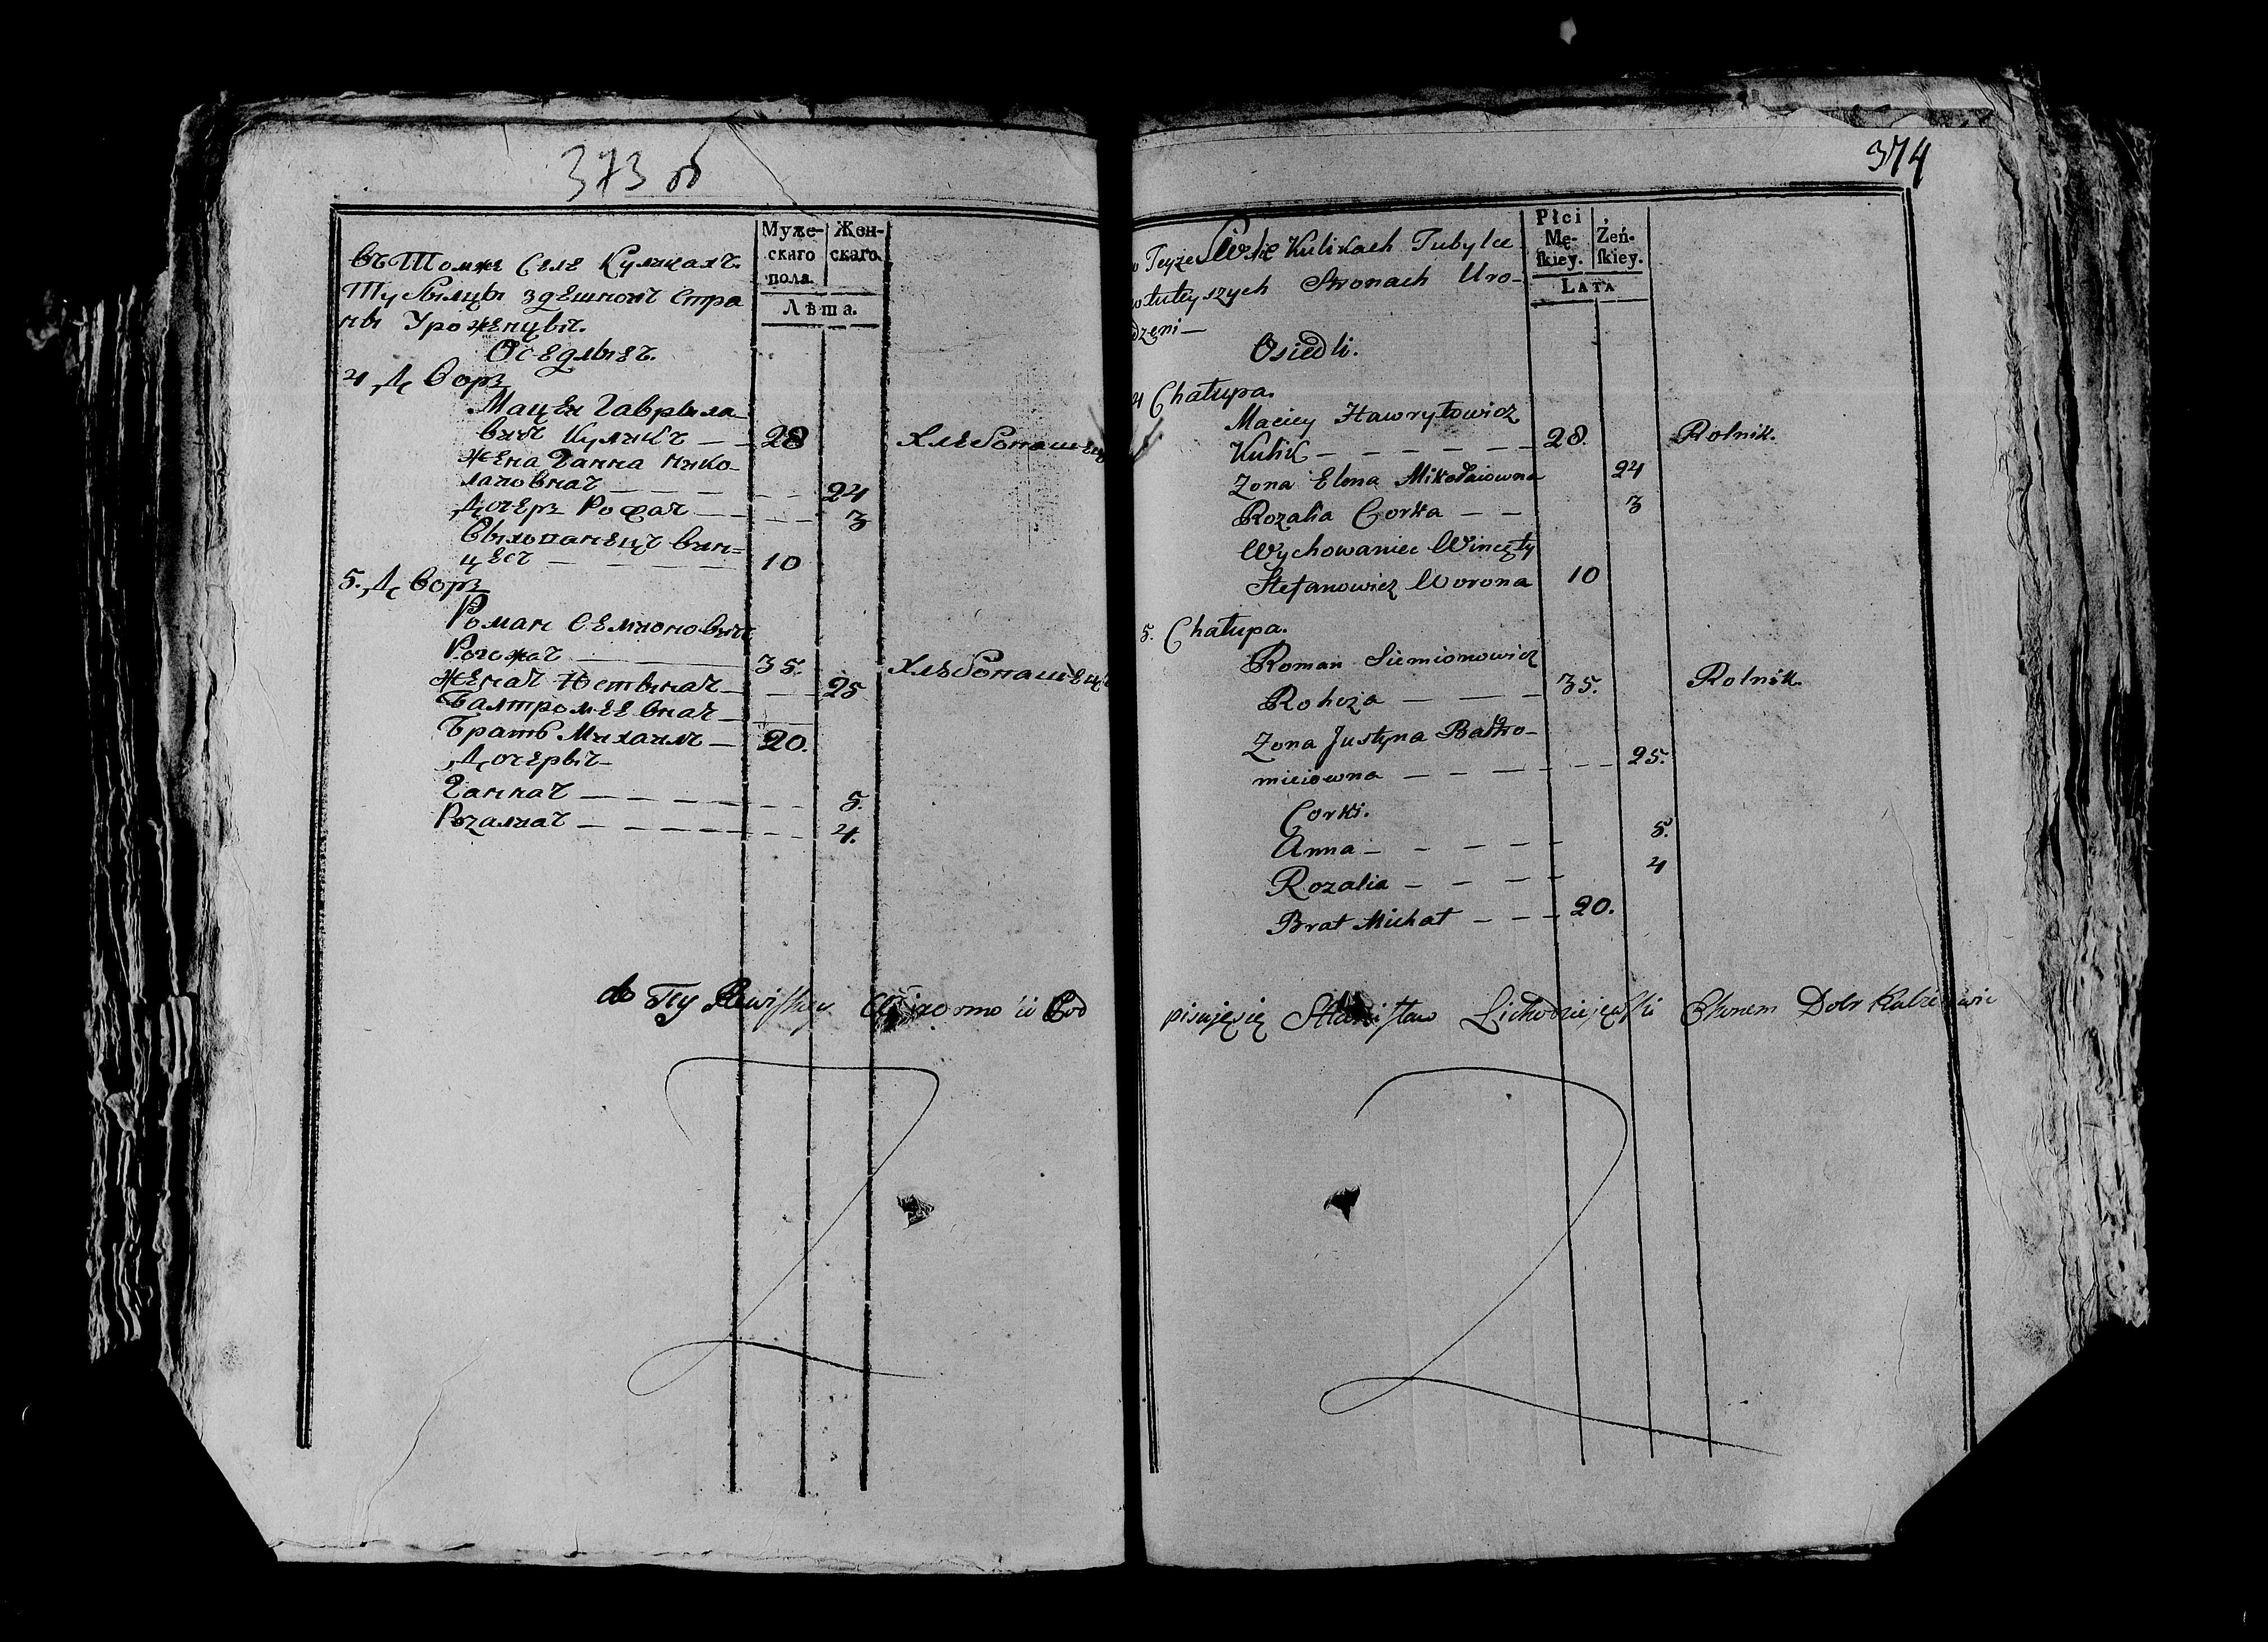 373 об
Муже-
скаго
пола.
Жен-
скаго.
Лѣта.
въ Томже Селе Куликахъ.
Тубылцы здешном Стра
ны Уроженцы.
Оседлые.
4 Дворъ
Мацеи Гаврыла
вичъ Куликъ — — 28 Хлебопашец
Жена Ганна Нико-
лаіовна — — — 24
Дочеръ Розаліа — — — 3
Выхопанецъ Вин=
цес — — — — 10
5. Дворъ
Роман Семионовичъ
Рогожа — 35. Хлебопашец
Жена Юстына — — — 25
Балтромеевна —
Братъ Михаилъ — 20.
Дочеры —
Ганна — — — — 5.
Розалиа — — — — 4.
do Tey Rewizyi pod
374
Płci
Mę-
ſkiey.
Żeń-
ſkiey.
LATA
w Teyże Wsie Kulikach Tubylce
w tuteyszych Stronach Uro-
dzeni —
Osiedli.
4 Chałupa.
Maciey Hawryłowicz
Kulik — — — — — 28. Rolnik.
Zona Elena Mikołaiowna 24
Rozalia Corka — — 3
Wychowaniec Wincęty
Stefanowicz Worona 10
5. Chałupa.
Roman Siemionowicz
Rohoza — — — 35. Rolnik.
Zona Justyna Bałtro-
mieiowna — — — — — 25.
Corki.
Anna — — — — — 5.
Rozalia — — — — 4
Brat Michał — — — 20.
pisuięsię Stanisław Lichodziejewski Ekonem Dobr